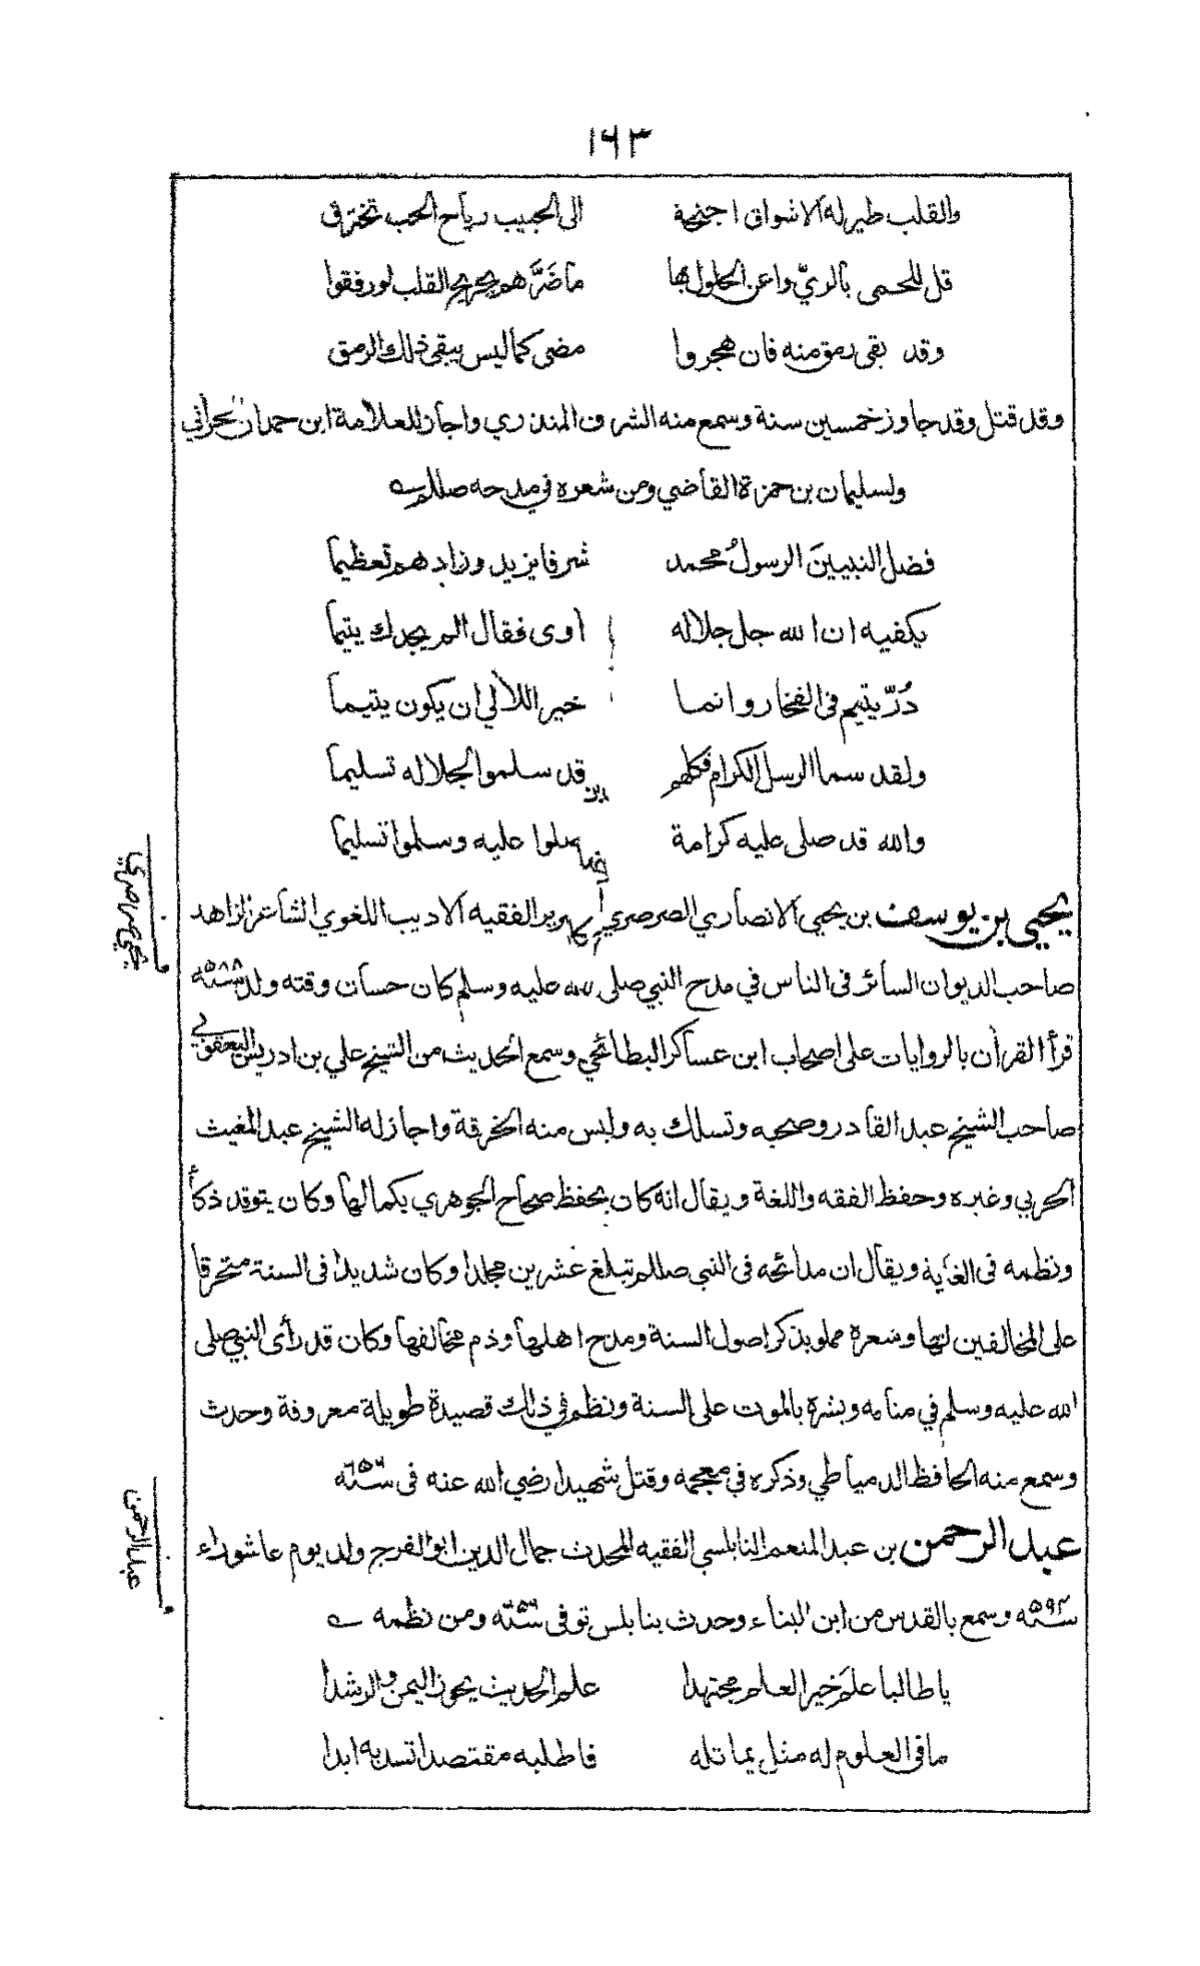 ١٦٣
والقلب طيرله الاشواق اجنحة الى الحبيب رياح الحب تخترق
قل للحمى بالريّ واعن الحلول بها ماضَرَّهم بجريح القلب لورفقوا
وقد بقى رمق منه فان هجروا مضى كماليس يبقى ذلك الرمق
وقد قتل وقد جاوز خمسين سنة وسمع منه الشرف المنذري واجاز للعلامة ابن حمدان الحراني
ولسليمان بن حمزة القاضي ومن شعره في مدحه صللم
فضل النبيينَ الرسولُ محمد شرفا يزيد وزادهم تعظيما
يكفيه ان الله جل جلاله اوى فقال الم يجدك يتيما
دُرّ يتيم فى الفخار وانما خير اللآلي ان يكون يتيما
ولقد سما الرسل الكرام فكلهم قد سلموا الجلاله تسليما
والله قد صلى عليه كرامة صلوا عليه وسلموا تسليما
يحيى بن يوسف بن يحيى الانصاري الصرصري الفقيه الاديب اللغوي الشاعر الزاهد
صاحب الديوان السائر فى الناس في مدح النبي صلى الله عليه وسلم كان حسان وقته ولد سنة ٥٨٨
قرأ القرآن بالروايات على اصحاب ابن عساكر البطائحي وسمع الحديث من الشيخ علي بن ادريس اليعقوبي
صاحب الشيخ عبد القادر وصحبه وتسلك به ولبس منه الخرقة واجازله الشيخ عبد المغيث
الحربي وغيره وحفظ الفقه واللغة ويقال انه كان يحفظ صحاح الجوهري بكمالها وكان يتوقد ذكاً
ونظمه فى الغاية ويقال ان مدائحه فى النبي صللم تبلغ عشرين مجلدا وكان شديدا فى السنة متحرقا
على المخالفين لتها وشعره مملو بذكر اصول السنة ومدح اهلها وذم مخالفها وكان قد رأى النبي صلى
الله عليه وسلم في منامه وبشره بالموت على السنة ونظم في ذلك قصيدة طويلة معروفة وحدث
وسمع منه الحافظ الدمياطي وذكره في معجمه وقتل شهيدا رضي الله عنه فى سنة ٦٥٦
عبد الرحمن بن عبد المنعم النابلسي الفقيه المحدث جمال الدين ابو الفرج ولد يوم عاشوراء
سنة ٥٩٤ وسمع بالقدس من ابن البناء وحدث بنابلس توفى ومن نظمه
ياطالبا علمَ خير العلم مجتهدا علم الحديث يحوز اليمن والرشدا
مافى العلوم له مثل يماثله فاطلبه مقتصدا تسد به ابدا
يحيى صرصري
عبد الرحمن